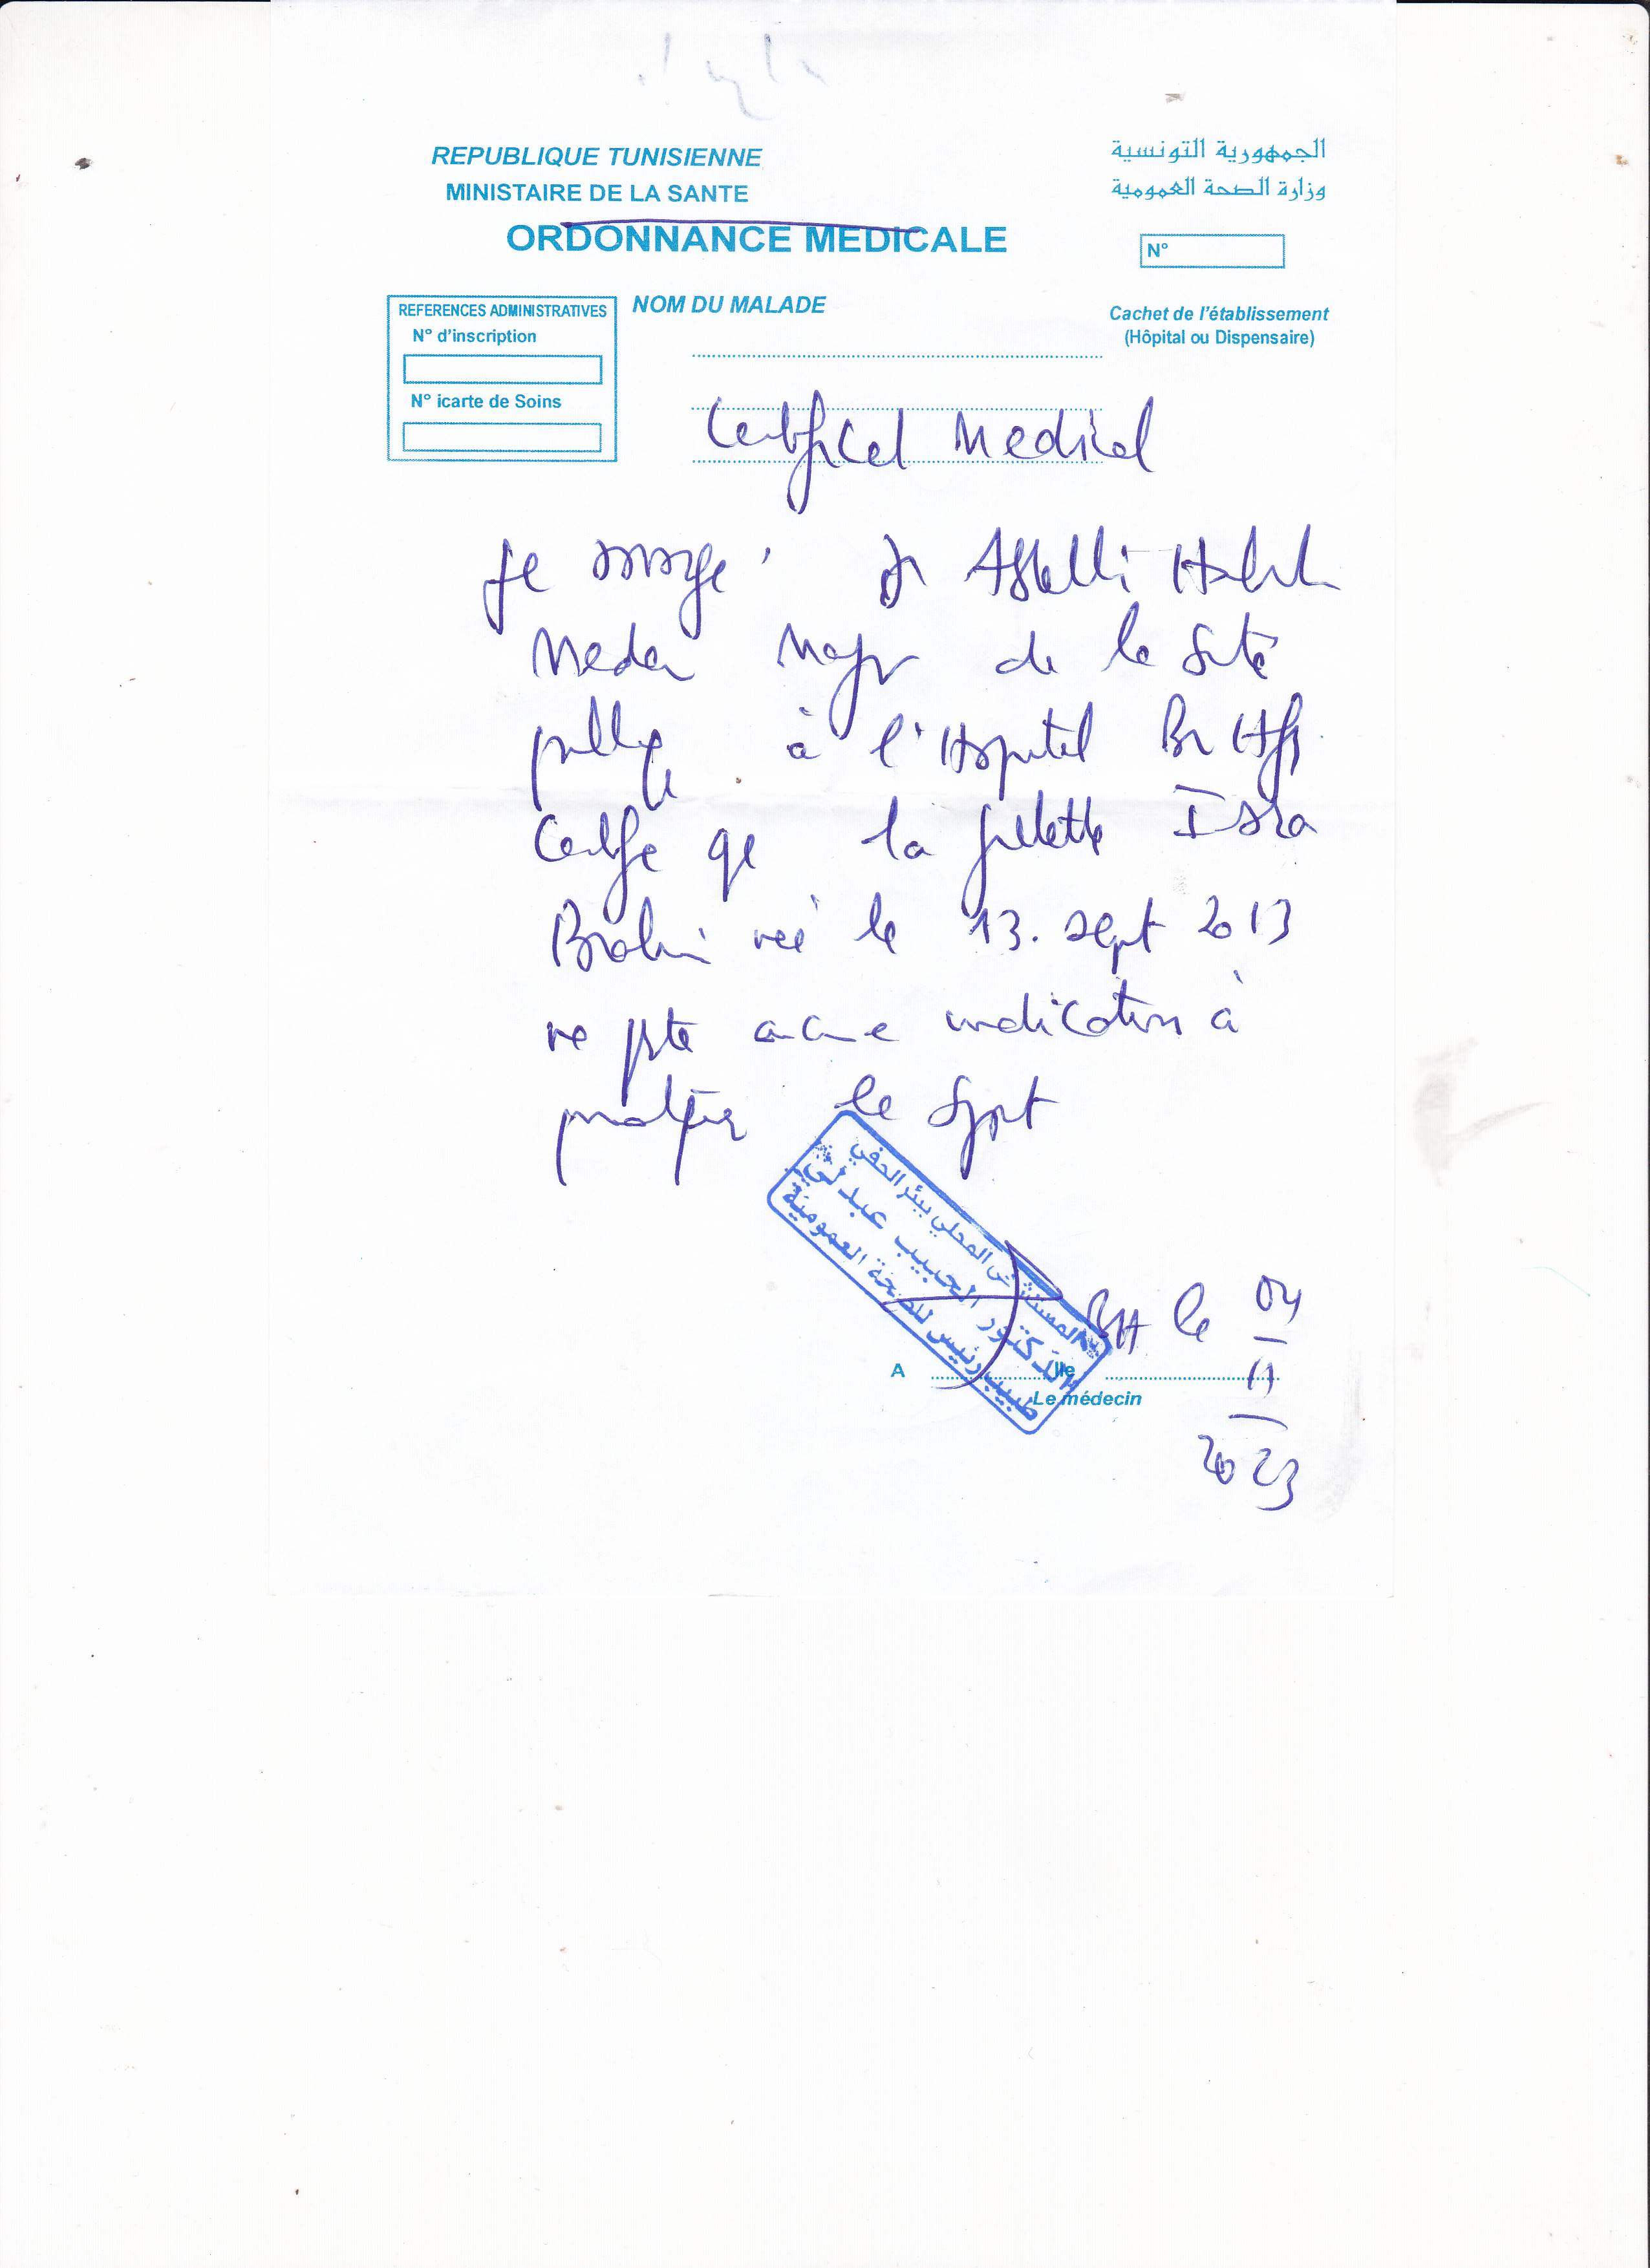 REPUBLIQUE TUNISIENNE
MINISTAIRE DE LA SANTE
الجمهورية التونسية
وزارة الصحة العمومية
ORDONNANCE MEDICALE
N°
REFERENCES ADMINISTRATIVES
N° d'inscription
N° icarte de Soins
NOM DU MALADE
Cachet de l'établissement
(Hôpital ou Dispensaire)
Certificat Medical
Je Dr Habib
Medecin Major de la Santé
publique à l'Hopital Bir Hfey
Certifie que la fillette Isra
Brahmi née le 13. sept 2013
ne porte aucune indication à
pratiquer le Sport
المستشفى المحلي ببئر الحفي
الدكتور الحبيب عبدلي
طبيب رئيس للصحة العمومية
BH le 04
11
2023
A lle
Le médecin